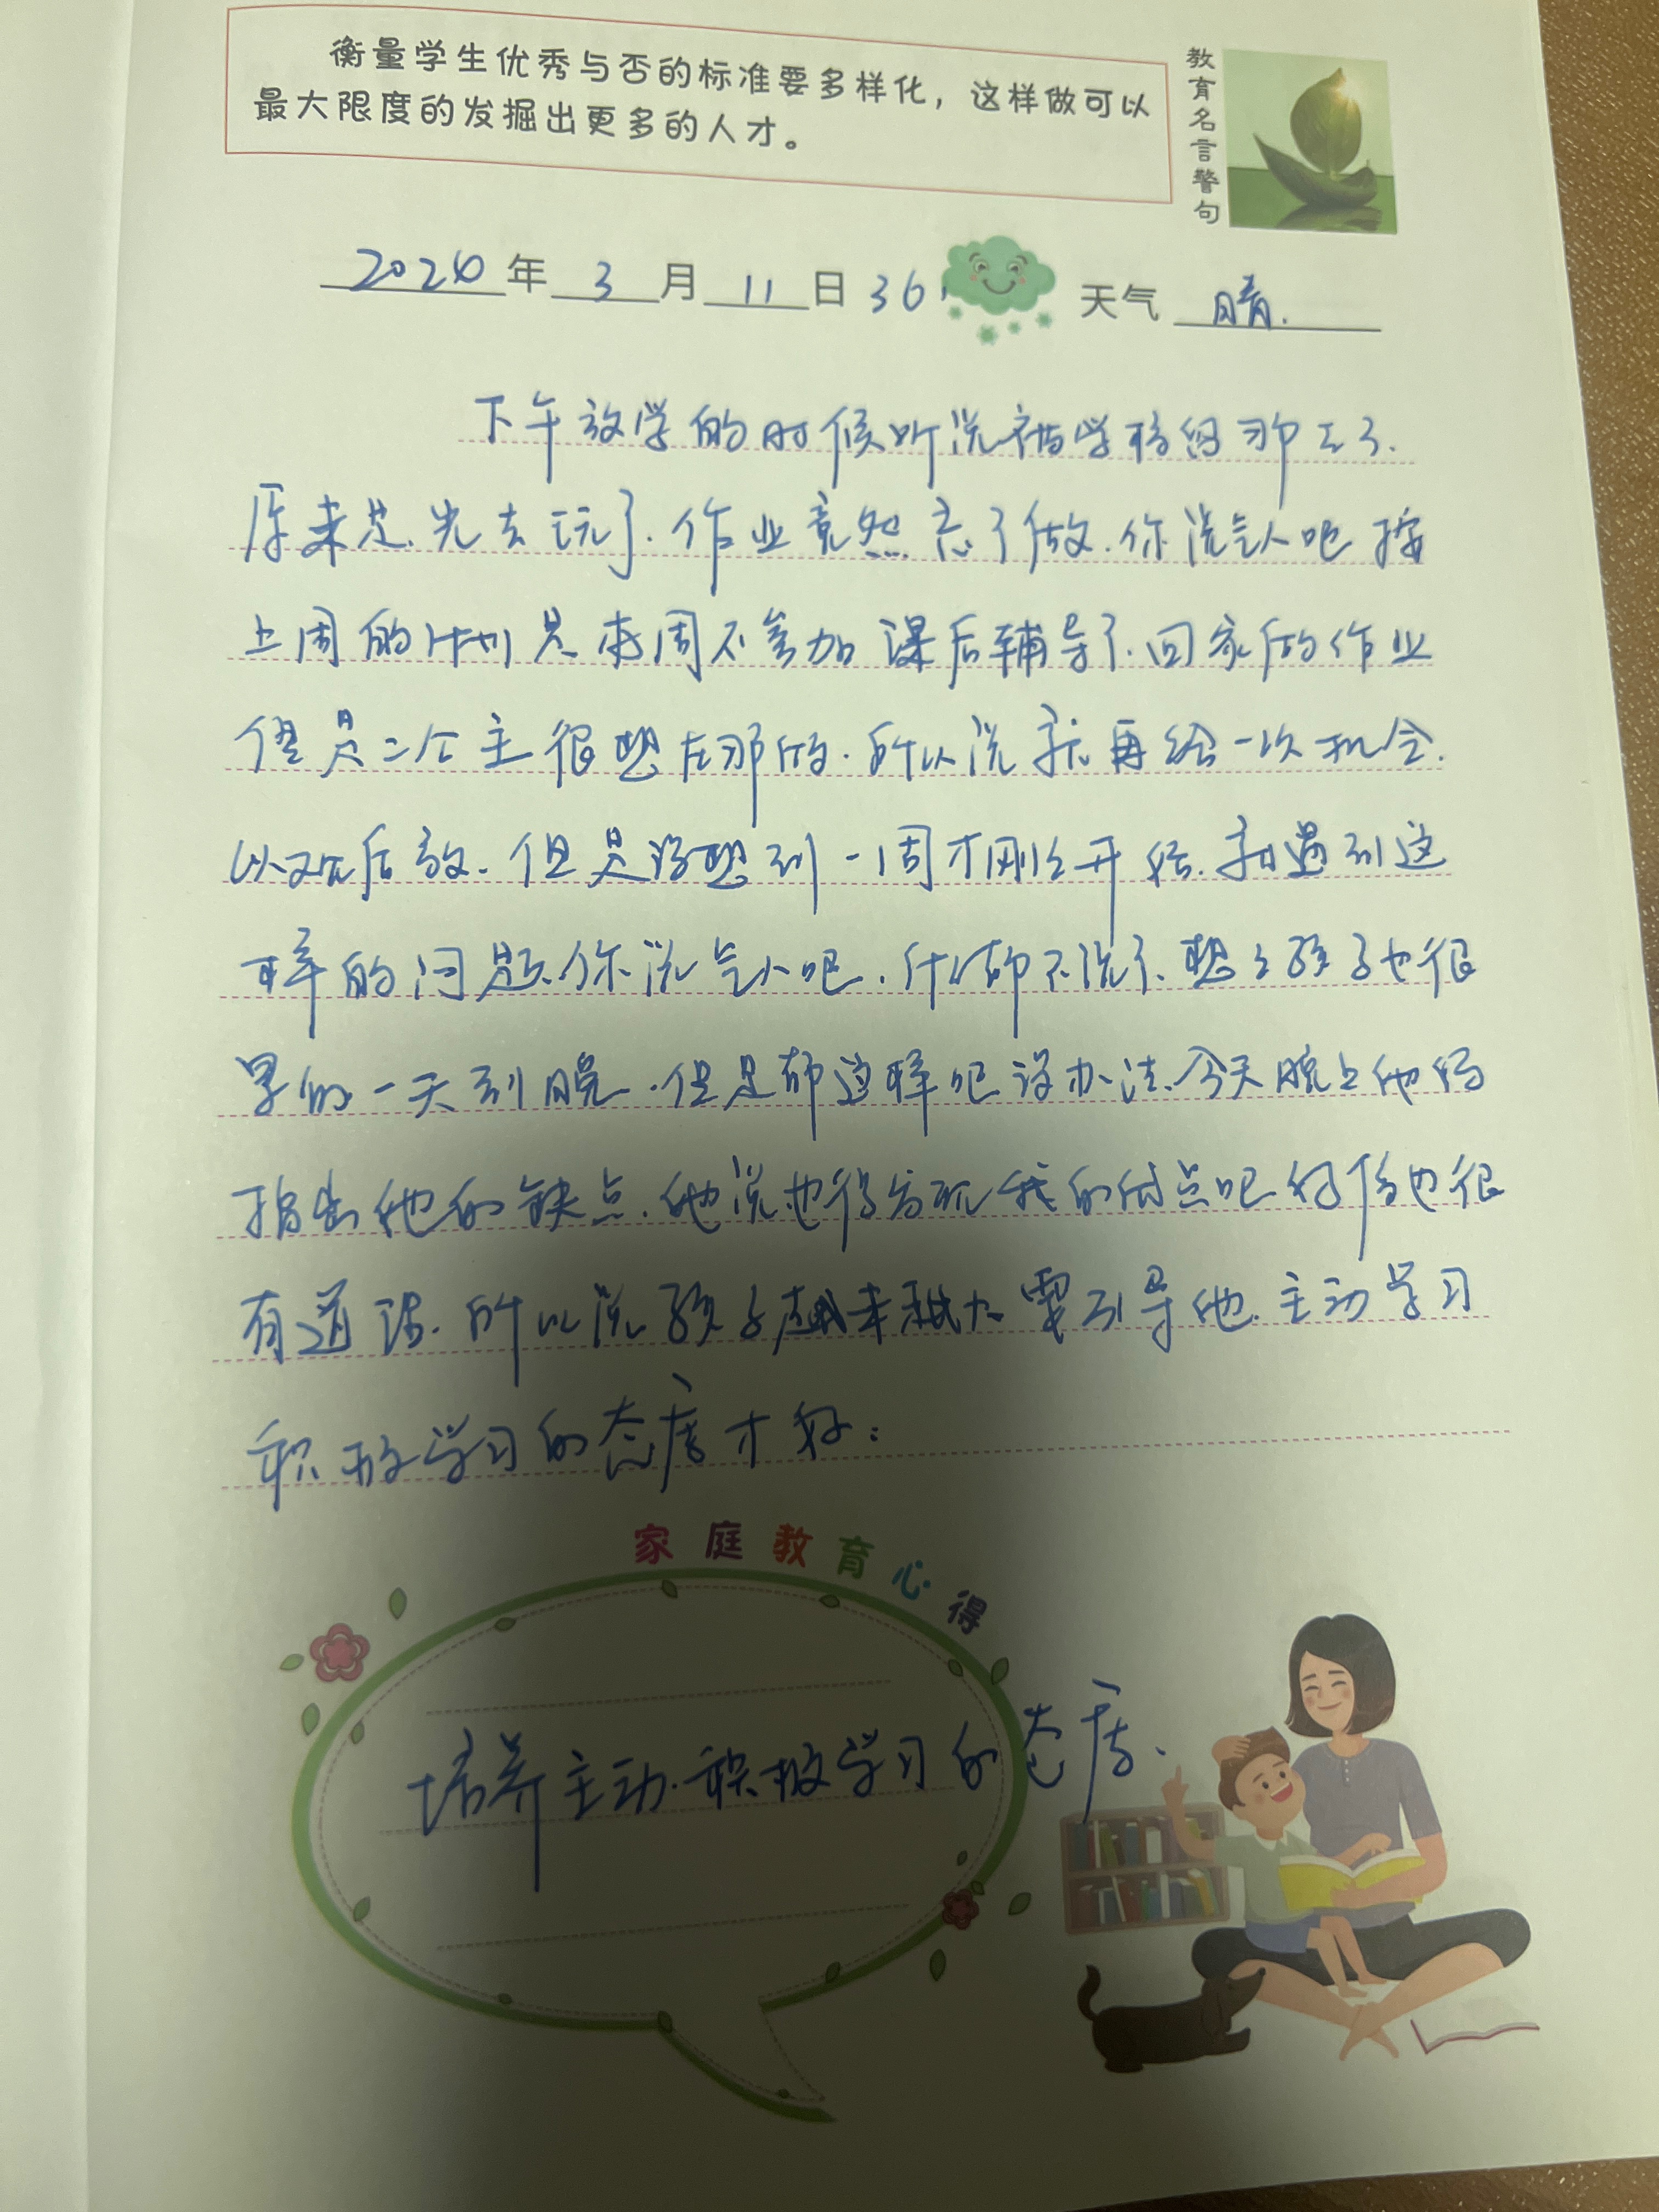 衡量学生优秀与否的标准要多样化，这样做可以
最大限度的发掘出更多的人才。
教育名言警句
2024年 3月 11日 36 天气 晴.
下午放学的时候听说被学校留那了.
原来是先去玩了.作业竟然忘了做.你说气人吧 按
上周的计划是本周不参加课后辅导了.回家的作业
但是二个主很想在那的.所以说就再给一次机会.
以观后效.但是没想到一周才刚刚开始.就遇到这
样的问题.你说气人吧.什么都不说了.想想孩子也很
累的一天到晚.但是都这样吧没办法.今天晚上他妈
指出他的缺点.他说也得发现我的优点吧 好像也很
有道理.所以说孩子越来越大要引导他.主动学习
积极学习的态度才好:
家庭教育心得
培养主动.积极学习的态度.